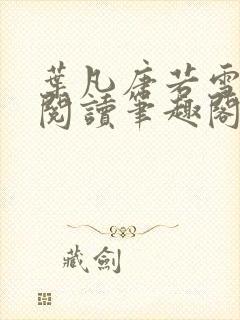 葉凡唐若雪
閱讀筆趣閣
藏劍